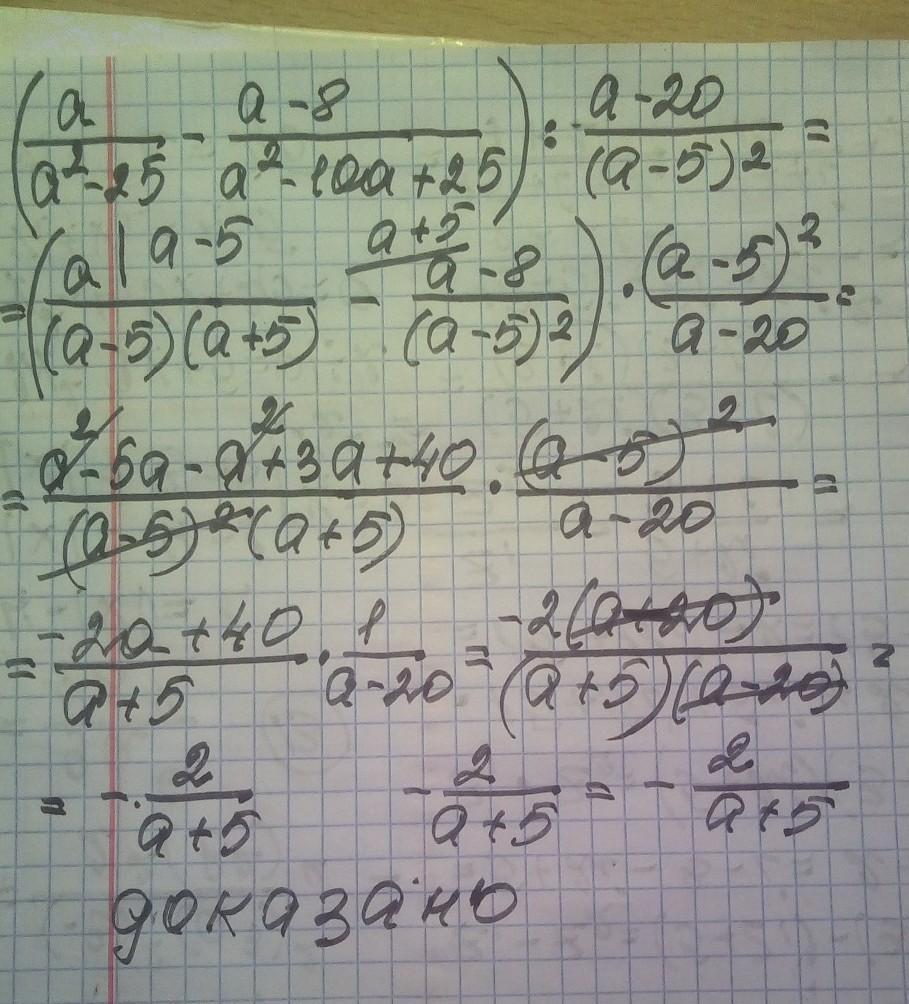 (a/(a²-25) - (a-8)/(a²-10a+25)) : (a-20)/(a-5)² =
= (a | a-5/((a-5)(a+5)) - a+5 / a-8/(a-5)²) · (a-5)²/(a-20) =
= (a²-5a-a²+3a+40)/((a-5)²(a+5)) · (a-5)²/(a-20) =
= (-2a+40)/(a+5) · 1/(a-20) = -2(a+20)/((a+5)(a-20)) =
= - 2/(a+5)  - 2/(a+5) = - 2/(a+5)
доказано